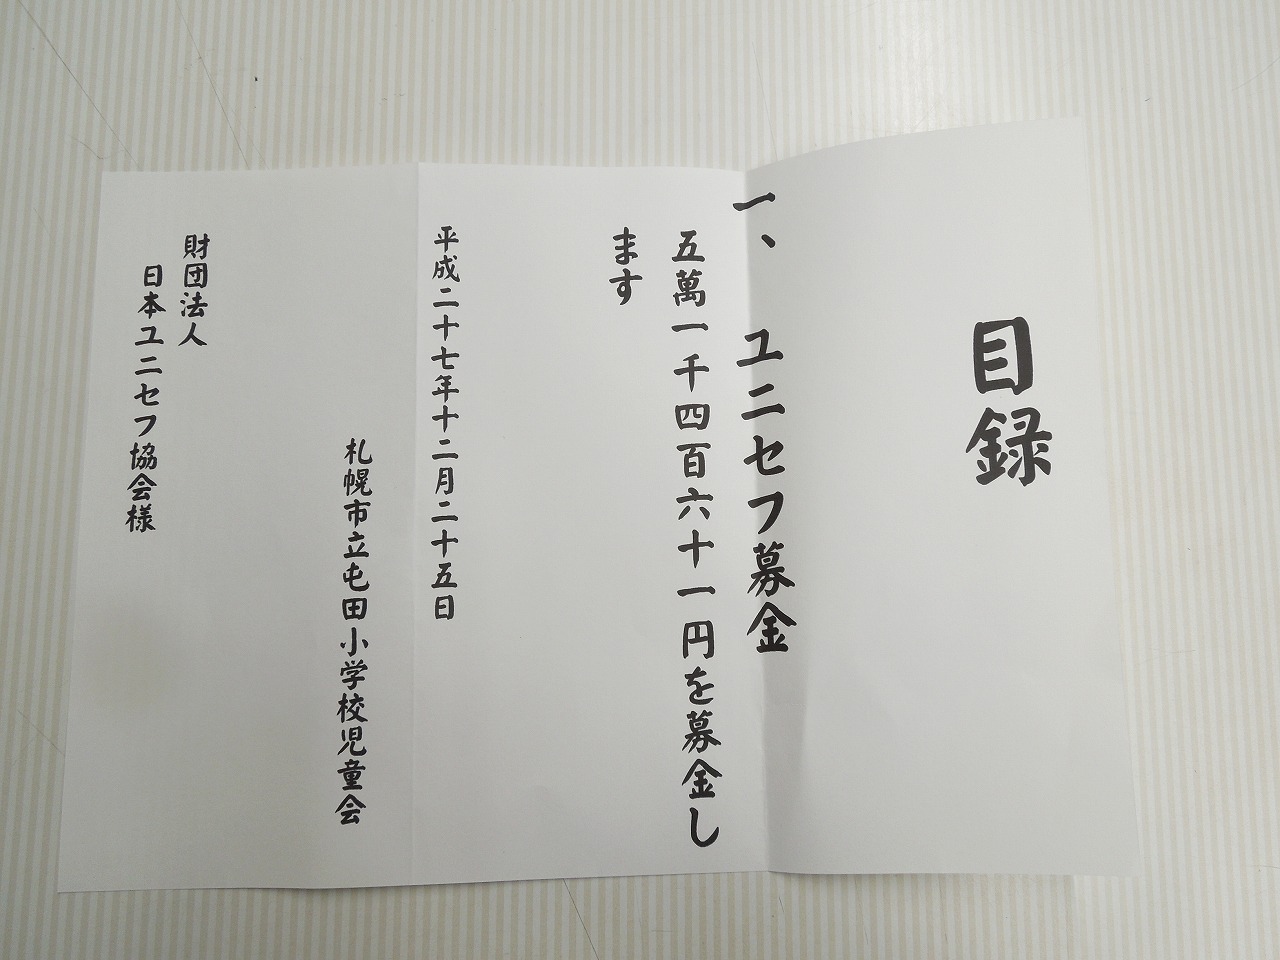 目録
一、 ユニセフ募金
五萬一千四百六十一円を募金し
ます
平成二十七年十二月二十五日
札幌市立屯田小学校児童会
財団法人
日本ユニセフ協会様